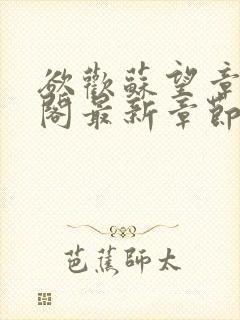 欲歡蘇望章
閣最新章節
芭蕉師太